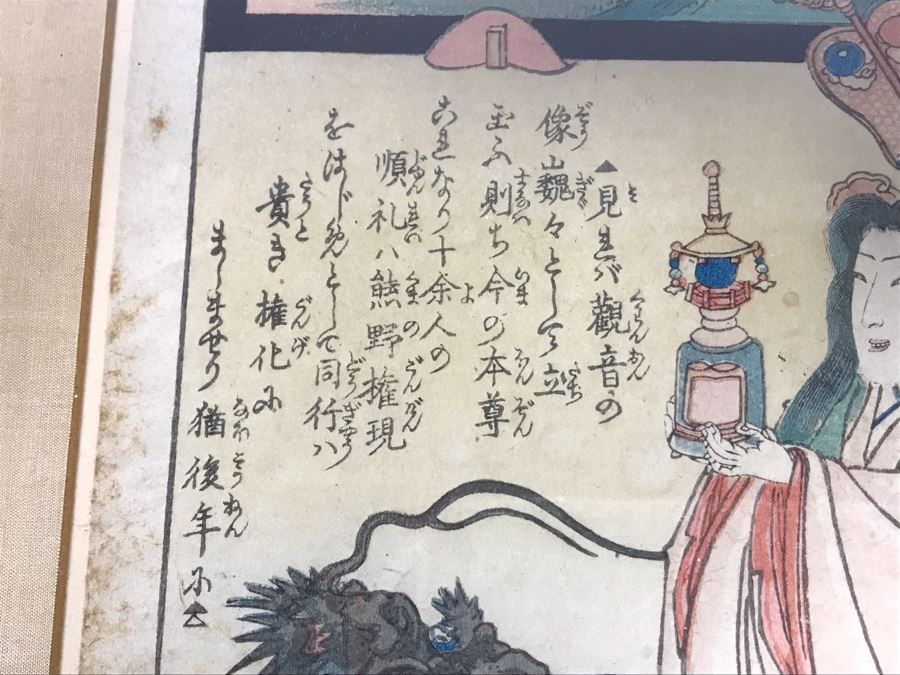 ▲見れバ觀音の
像山魏々として立
玉ふ則ち今の本尊
これなり十余人の
順礼ハ熊野権現
をはじめとして同行ハ
貴き権化に
ましませり猶後年に▲